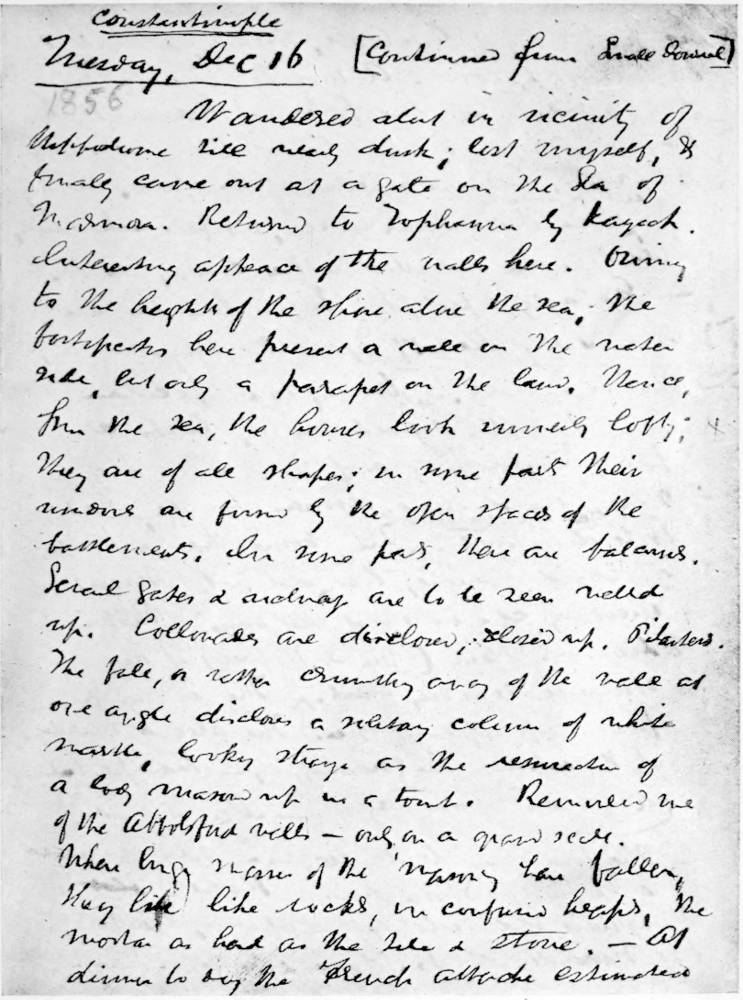 Constantinople
Tuesday, Dec 16 [Continued from Small Journal]
1856
Wandered about in vicinity of
Hippodrome till nearly dusk; lost myself, &
finaly came out at a gate on the Sea of
Marmora. Returned to Tophanna by kayack.
Interesting appeace of the walls here. Owing
to the heights of the shore alone the sea, the
fortificatis here present a wall on the water
side, but only a parapet on the land. Hence,
from the sea, the houses look lofty;
They are of all shapes; in some parts their
windows are formd by the open spaces of the
battlements. In some parts, there are balconies.
Several gates & are to be seen walled
up. Collonades are disclosed, closed up. Pilasters.
The fall, or rather crumbling away of the wall at
one angle discloses a solitary column of white
marble, looking strange as the resurrection of
a body masond up in a tomb. Reminded me
of the Abbotsford walls — only on a grand scale.
Where huge masses of the masonry have fallen,
they like rocks, in confused heaps, the
mortar as hard as the tile & stone. — At
dinner to day the French attache estimated